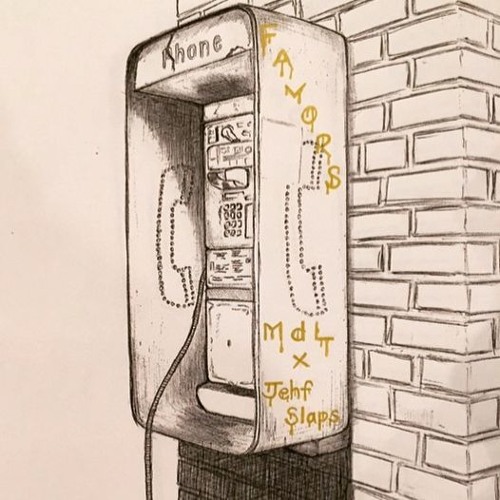 Phone
FAMORS
MdLT
x
Jehf
Slaps